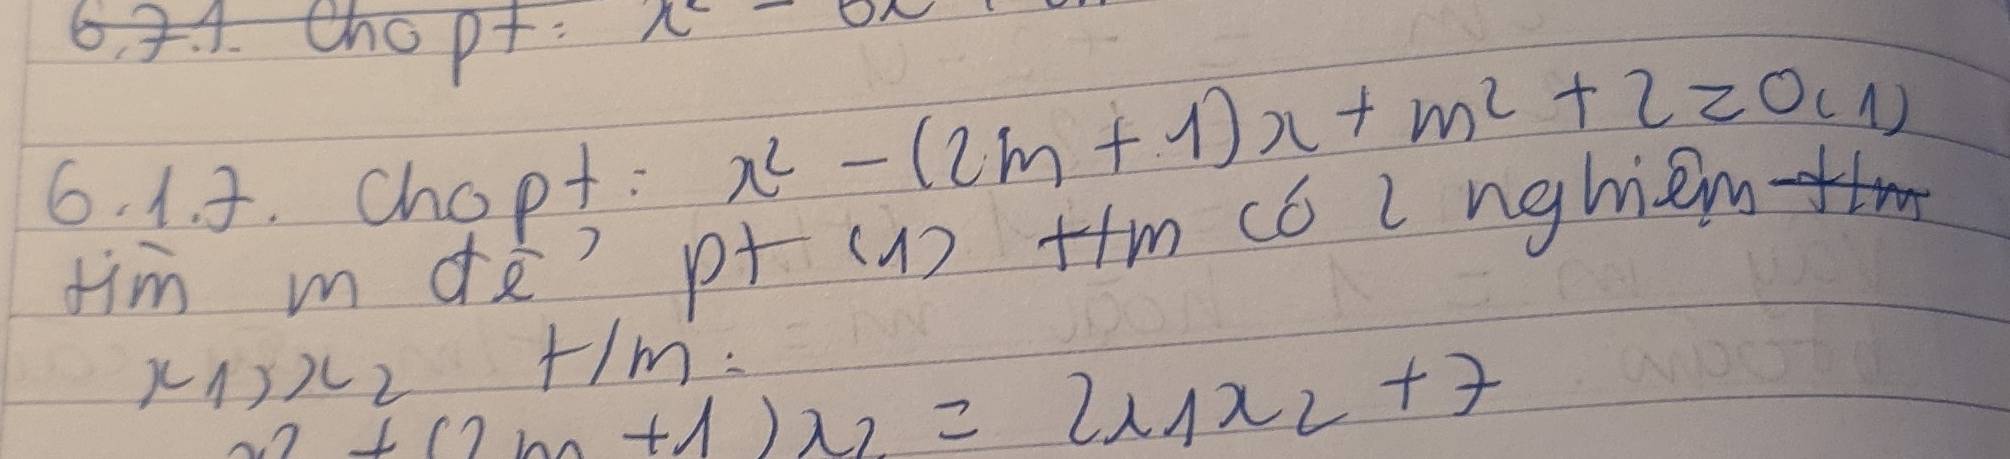 6.7.1. Cho pt: x² - 6x
6.1.7. Cho pt: x² - (2m + 1)x + m² + 2 = 0 (1)
tìm m để pt (1) ttm có 2 nghiệm ttm
x1, x2 t/m:
x² + (2m + 1)x2 = 2x1x2 + 7